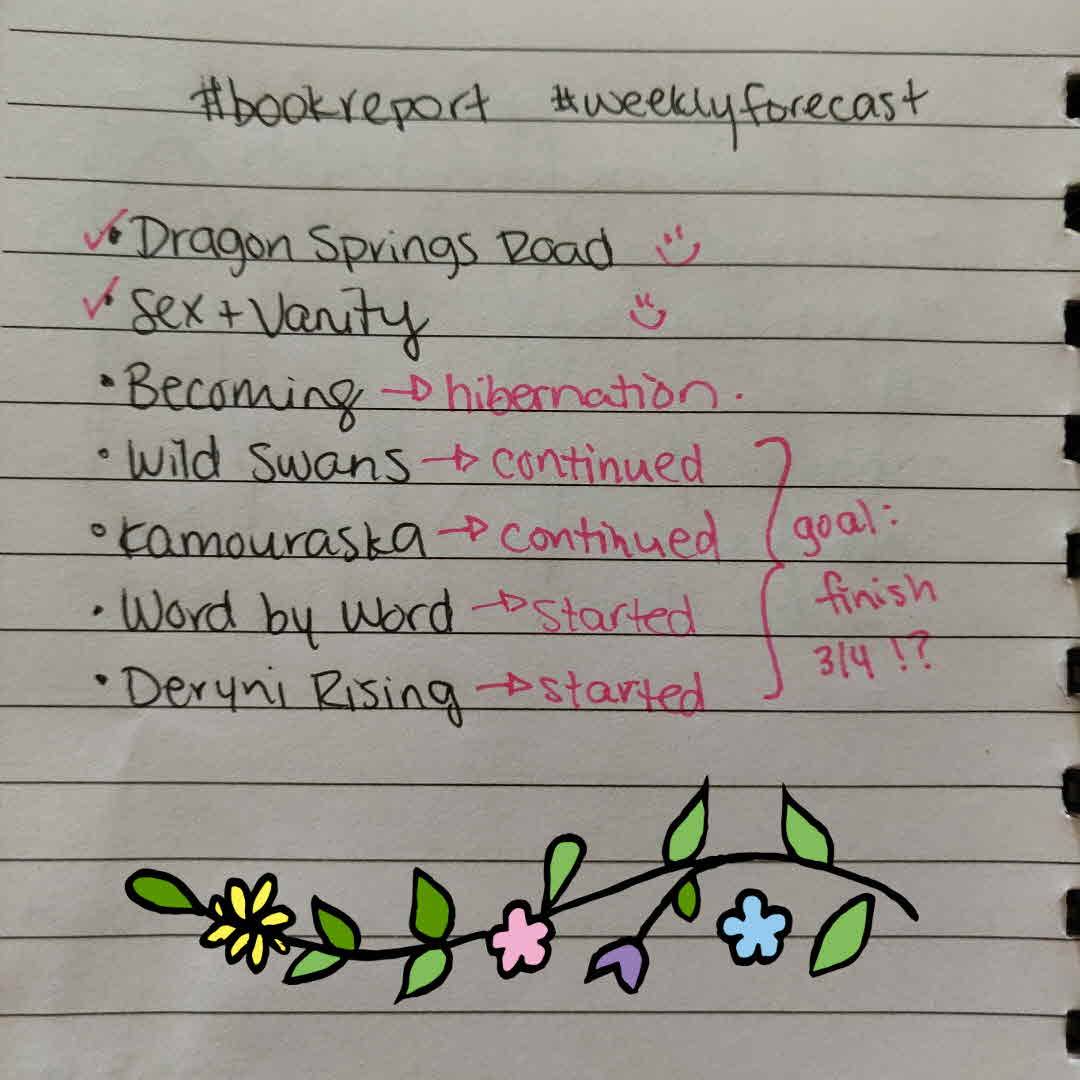 #bookreport #weeklyforecast
✓• Dragon Springs Road
✓• Sex + Vanity
• Becoming → hibernation.
• Wild Swans → continued
• Kamouraska → continued
goal:
• Word by Word → started
finish
3/4 !?
• Deryni Rising → started